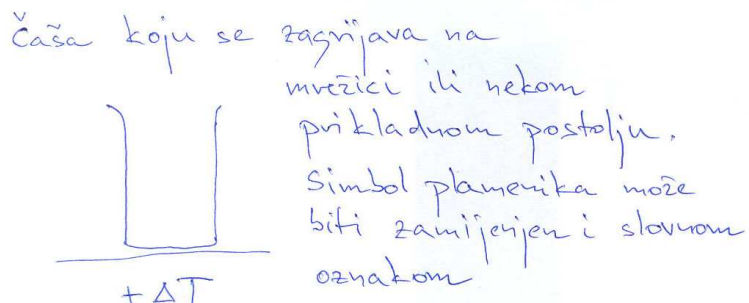 Čaša koju se zagrijava na
mrežici ili nekom
prikladnom postolju.
Simbol plamenika može
biti zamijenjen i slovnom
oznakom
+ ΔT